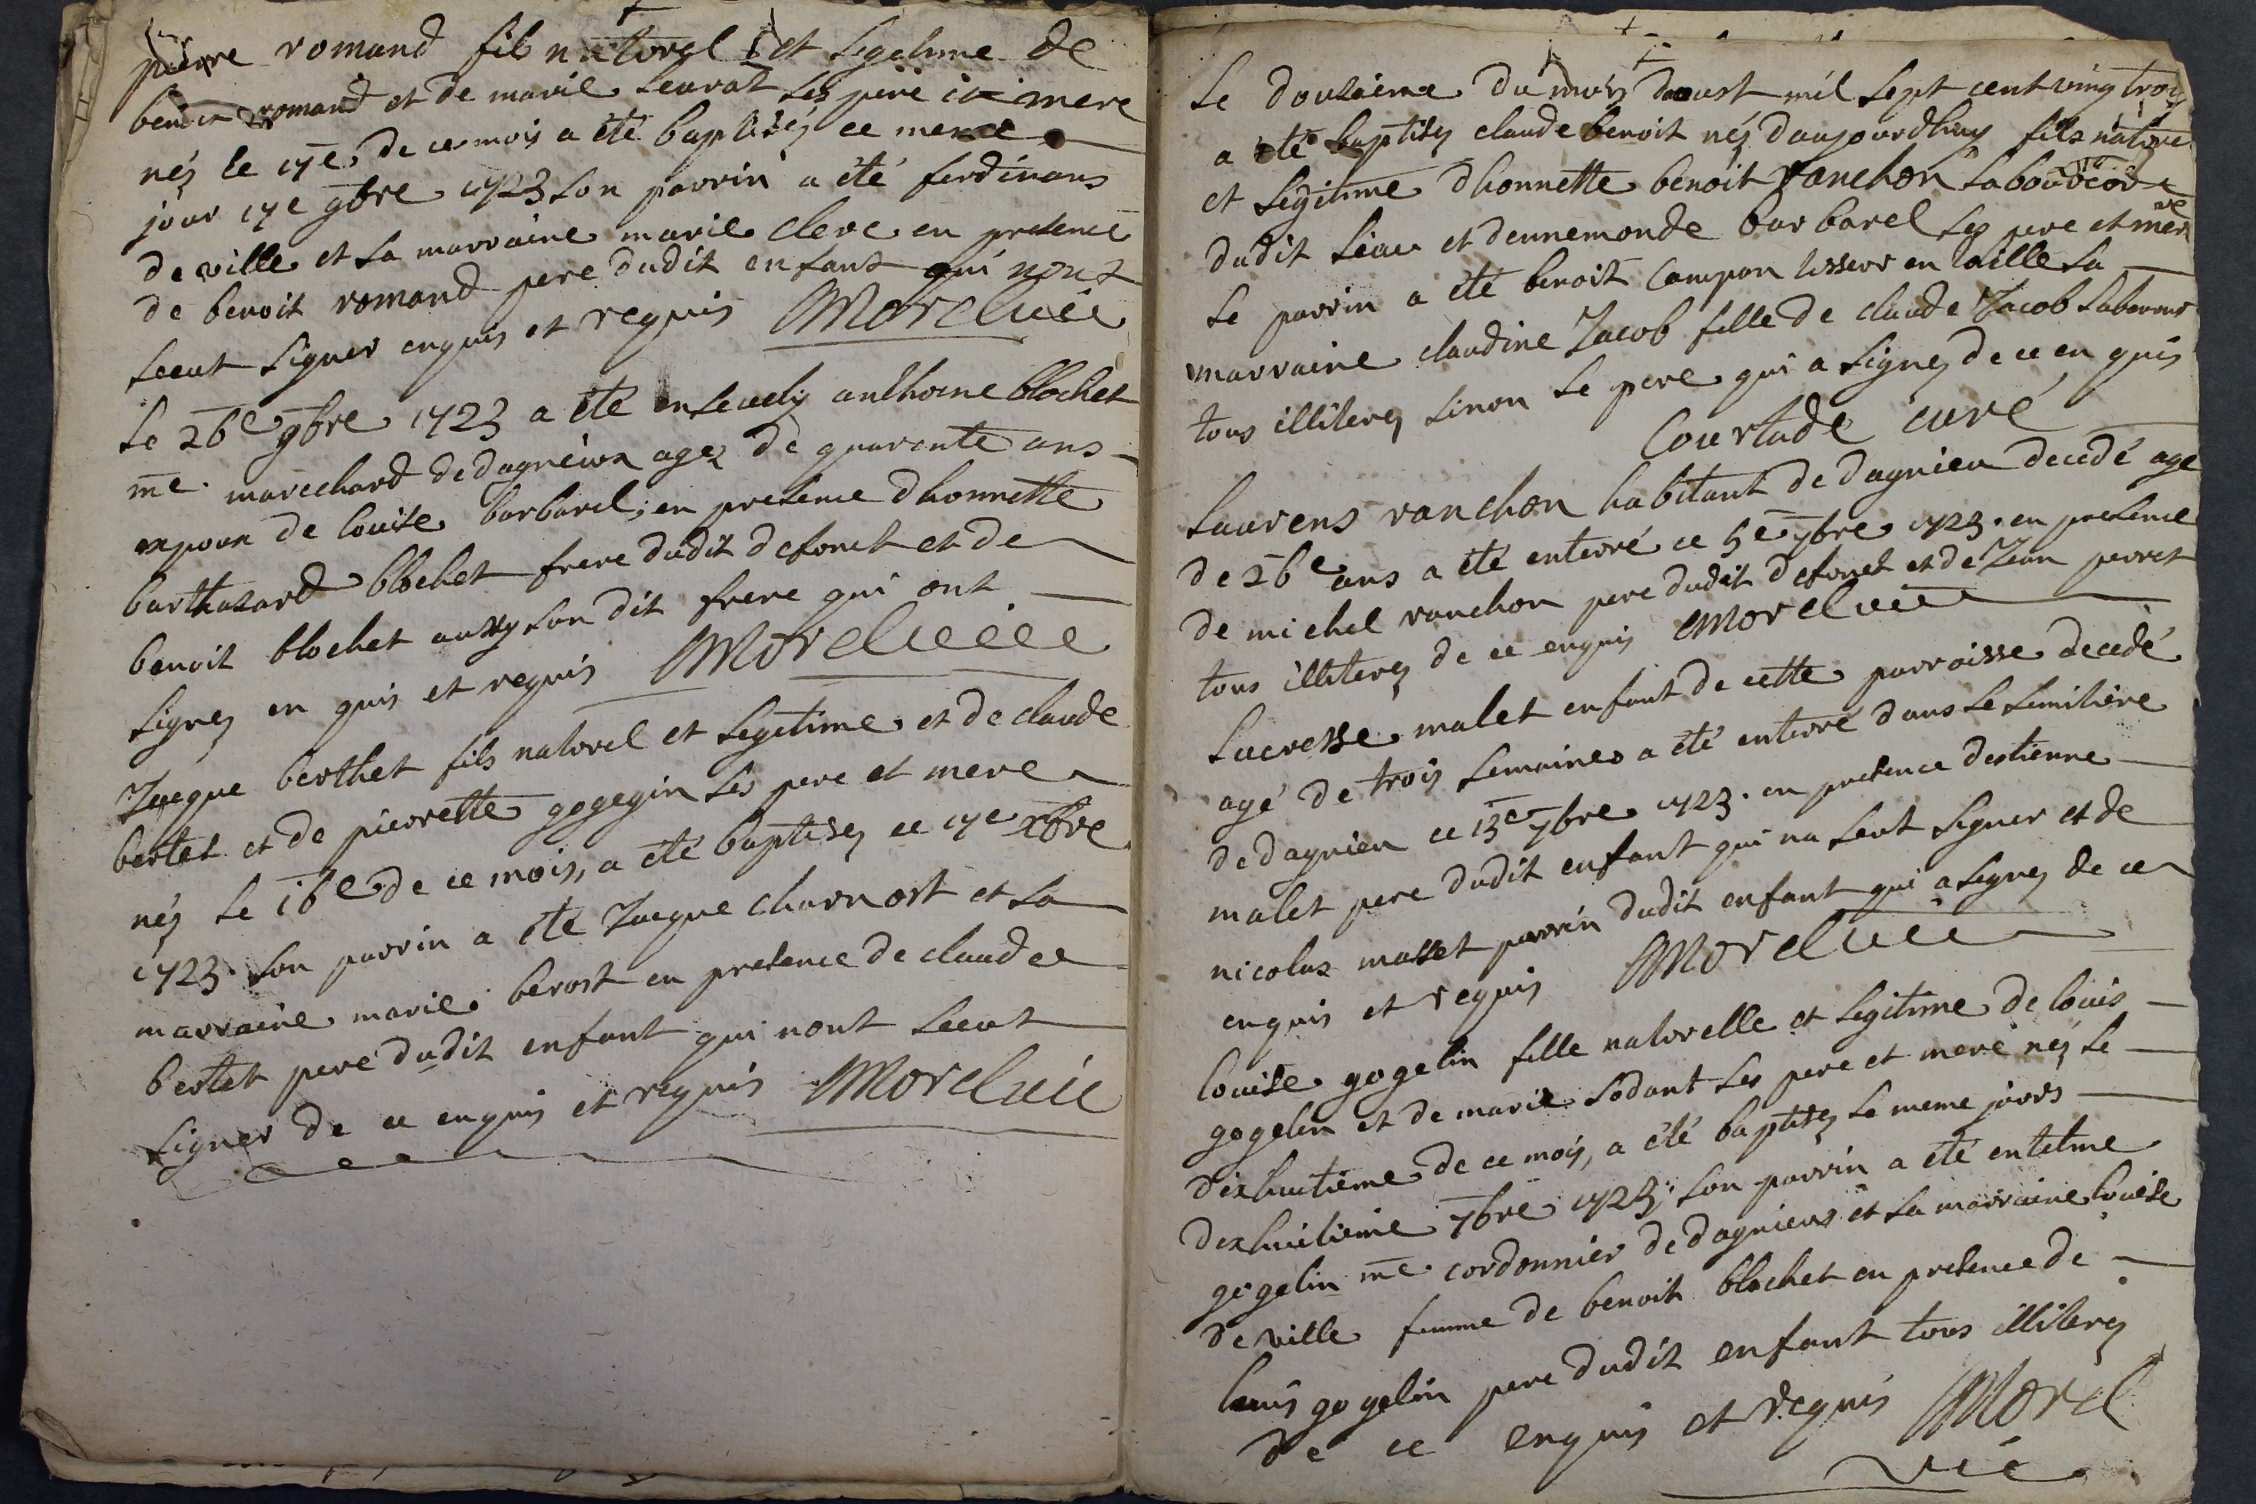 pierre romand fils naturel et legetime de
benoit romand et de marie seurat ses pere et mere
néz le 17e de ce mois a été baptiséz ce meme
jour 17e 9bre 1723 son parrin a été ferdinans
de ville et sa marraine marie clerc en presence
de benoit romand pere dudit enfant qui nont
sceut signer enquis et requis Morel vic
Le 26e 9bre 1723 a été enseuely anthoine blochet
me. marechard de dagnieux agez de quarente ans
expoux de louise barbarel; en presence dhonnette
barthazard blochet frere dudit defonct et de
benoit blochet aussy son dit frere qui ont
signez en quis et requis Morel vic
Jacque berthet fils naturel et legetime et de claude
bertet et de pierrette gegegin ses pere et mere
néz le 16e de ce mois, a été baptisez ce 17e xbre
1723. son parrin a été Jacque charnost et sa
marraine marie berost en presence de claude
bertet pere dudit enfant qui nont sceut
signer de ce enquis et requis Morel vic
Le douzieme du mois daoust mil sept cent ving trois
a été baptisez claude benoit néz daujourdhuy fils nature
et legitime dhonnette benoit ranchon laboureor
dudit lieu et dennemonde barbarel ses pere et mere
le parrin a été benoit Campan tisseur en toille la
marraine claudine Jacob fille de claude Jacob laboreur
tous illiterez sinon le pere qui a signez de ce en quis
Courtade curé
Laurens ranchon habitant de dagnieu decedé age
de 26e ans a été enterré ce 5e 7bre 1723. en presence
de michel ranchon pere dudit defonct et de Jean perret
tous illiterez de ce enquis Morel vic
Lucresse malet enfant de cette parroisse decedé
agé de trois semaines a été enterré dans le simitiére
de dagnieu ce 13e 7bre 1723. en presence destienne
malet pere dudit enfant qui na sceut signer et de
nicolas masset parrin dudit enfant qui a signez de ce
enquis et requis Morel vic
louise gogelin fille naturelle et legitime de louis
gogelin et de marie sodant ses pere et mere néz le
dixhuitieme de ce mois, a été baptisez le meme jours
dexhuitieme 7bre 1723; son parrin a été entelme
gogelin me. cordonnier de dagnieux et sa marraine louise
de ville femme de benoit blochet en presence de
louis gogelin pere dudit enfant tous illiterez
de ce enquis et requis Morel
vic